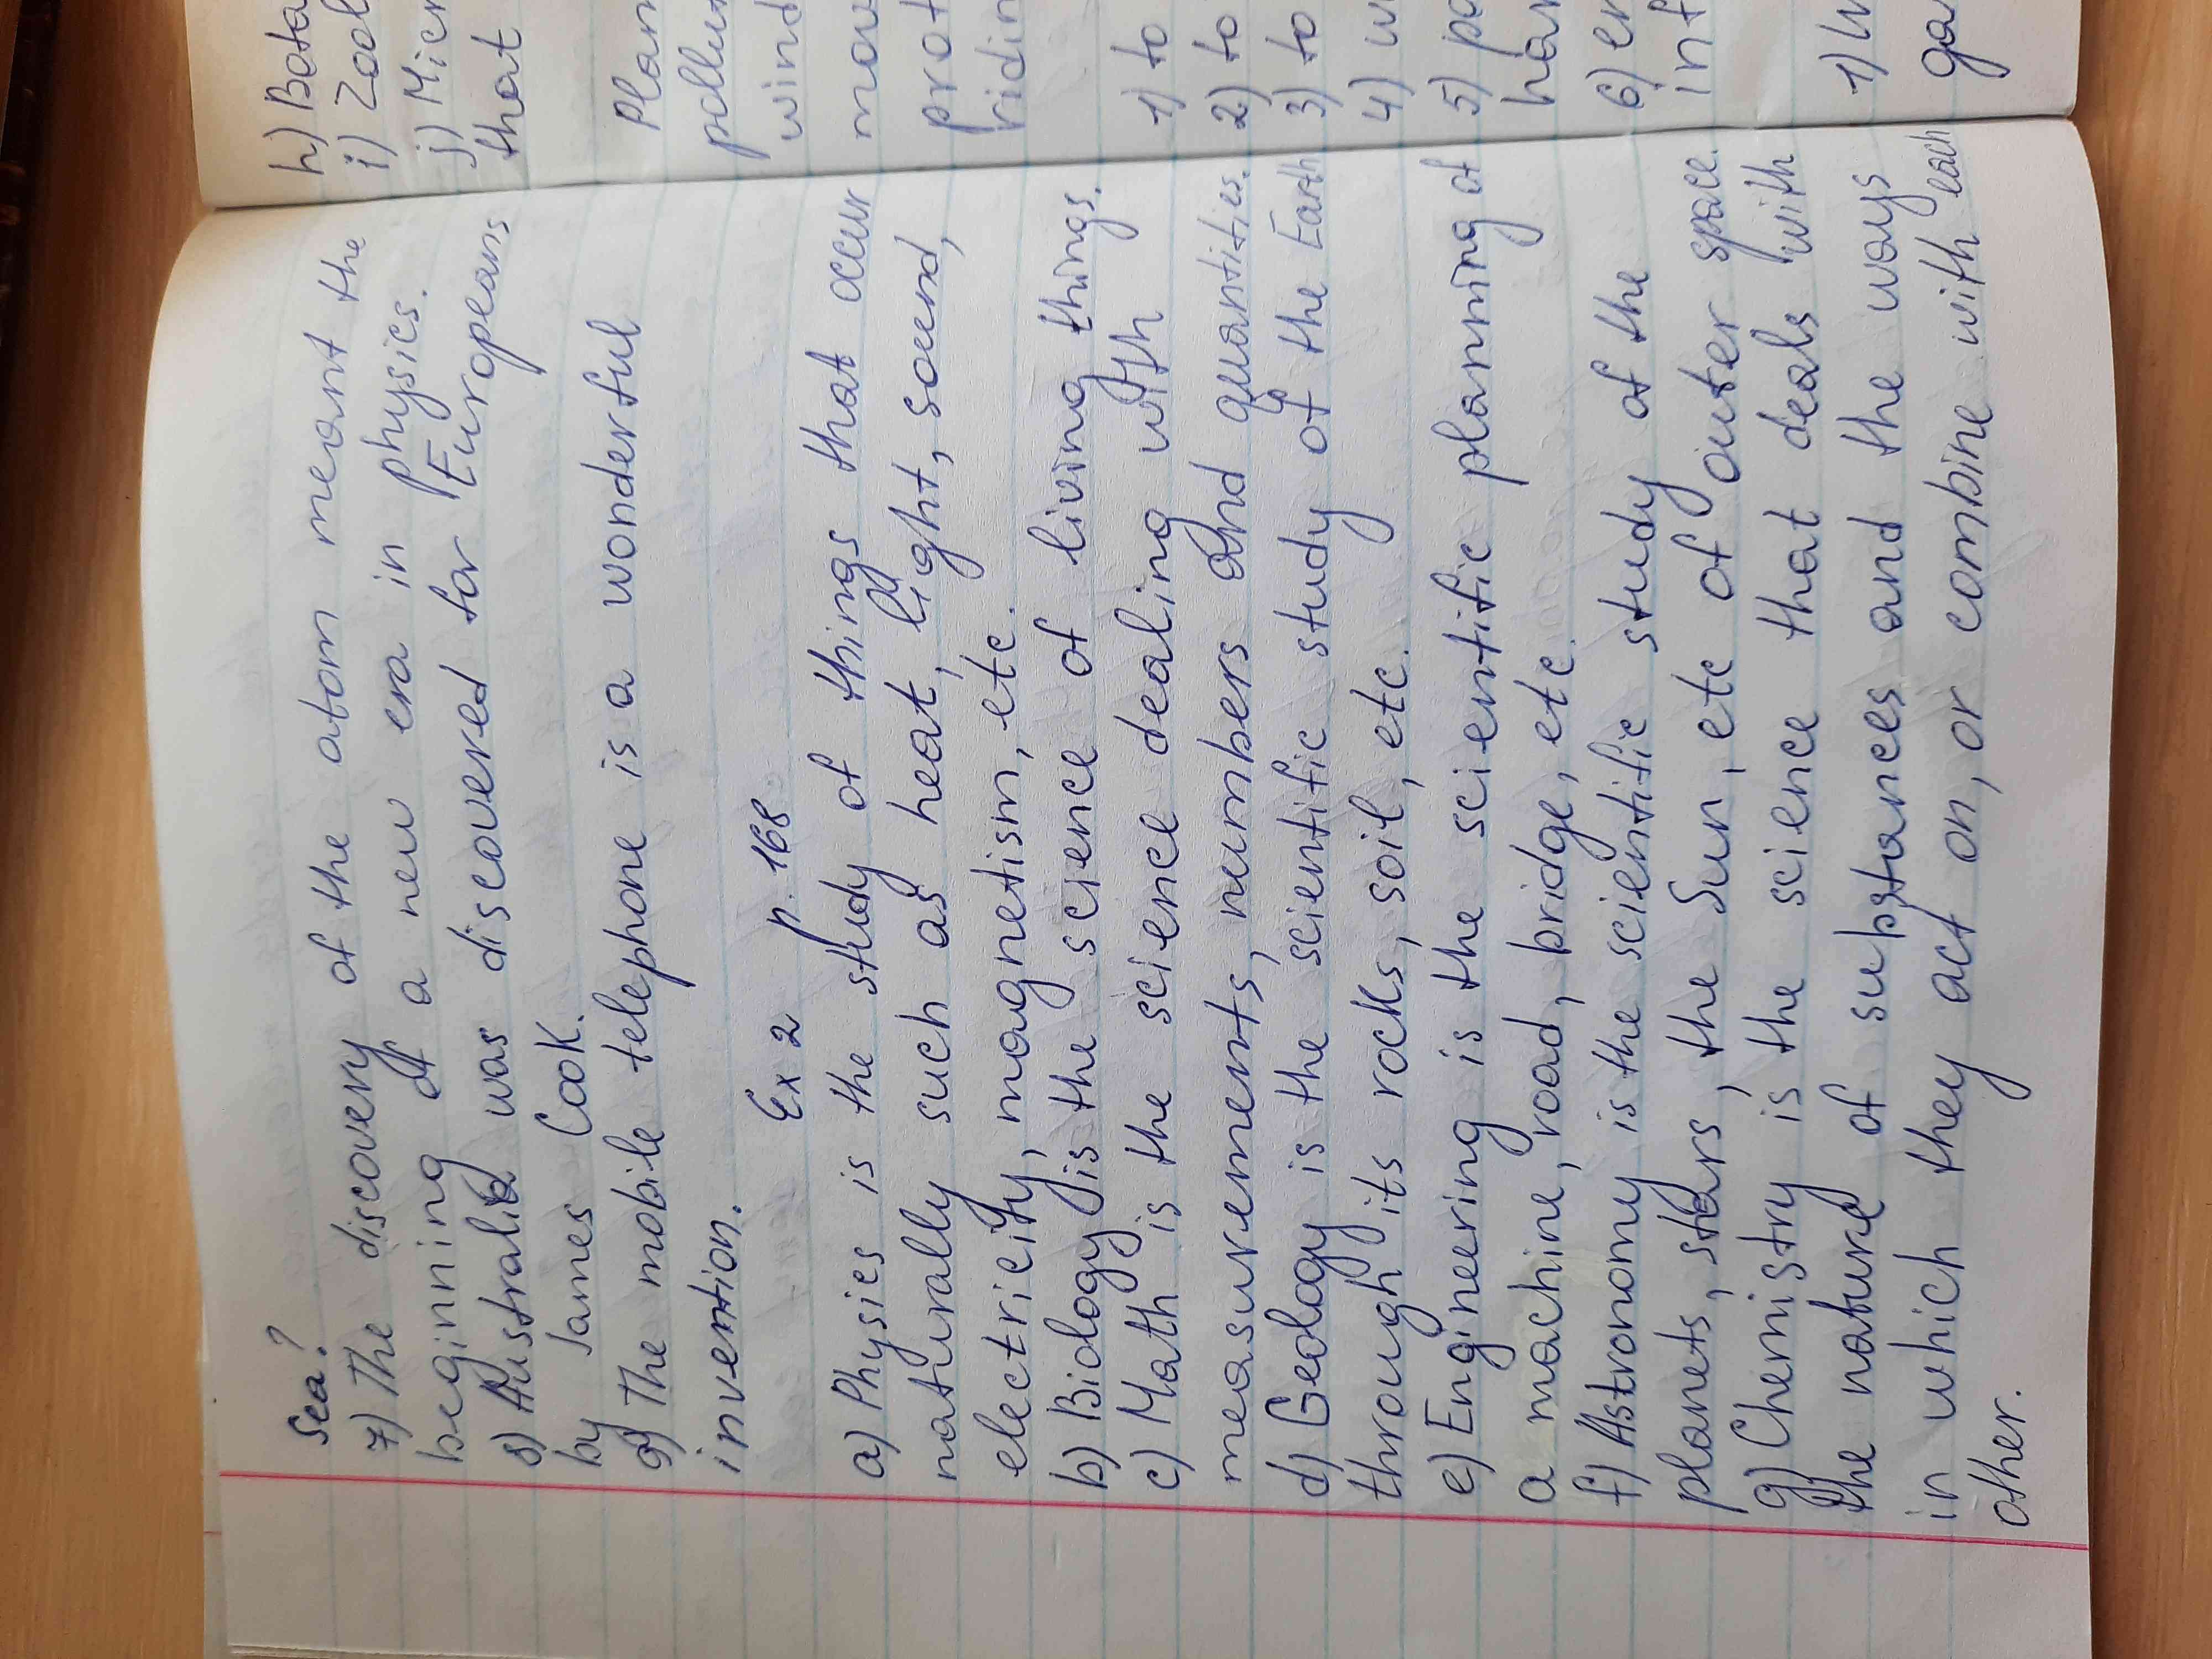 sea?
7) The discovery of the atom meant the
beginning of a new era in physics.
8) Australia was discovered for Europeans
by James Cook.
9) The mobile telephone is a wonderful
invention.
Ex 2 p. 168
a) Physics is the study of things that occur
naturally such as heat, light, sound,
electricity, magnetism, etc.
b) Biology is the science of living things.
c) Math is the science dealing with
measurements, numbers and quantities.
d) Geology is the scientific study of the Earth
through its rocks, soil, etc.
e) Engineering is the scientific planning of
a machine, road, bridge, etc.
f) Astronomy is the scientific study of the
planets, stars, the Sun, etc of outer space.
g) Chemistry is the science that deals with
the nature of substances and the ways
in which they act on, or combine with each
other.
h)
i)
j)
that
1) to
2) to
3) to
4)
5)
6)
1)